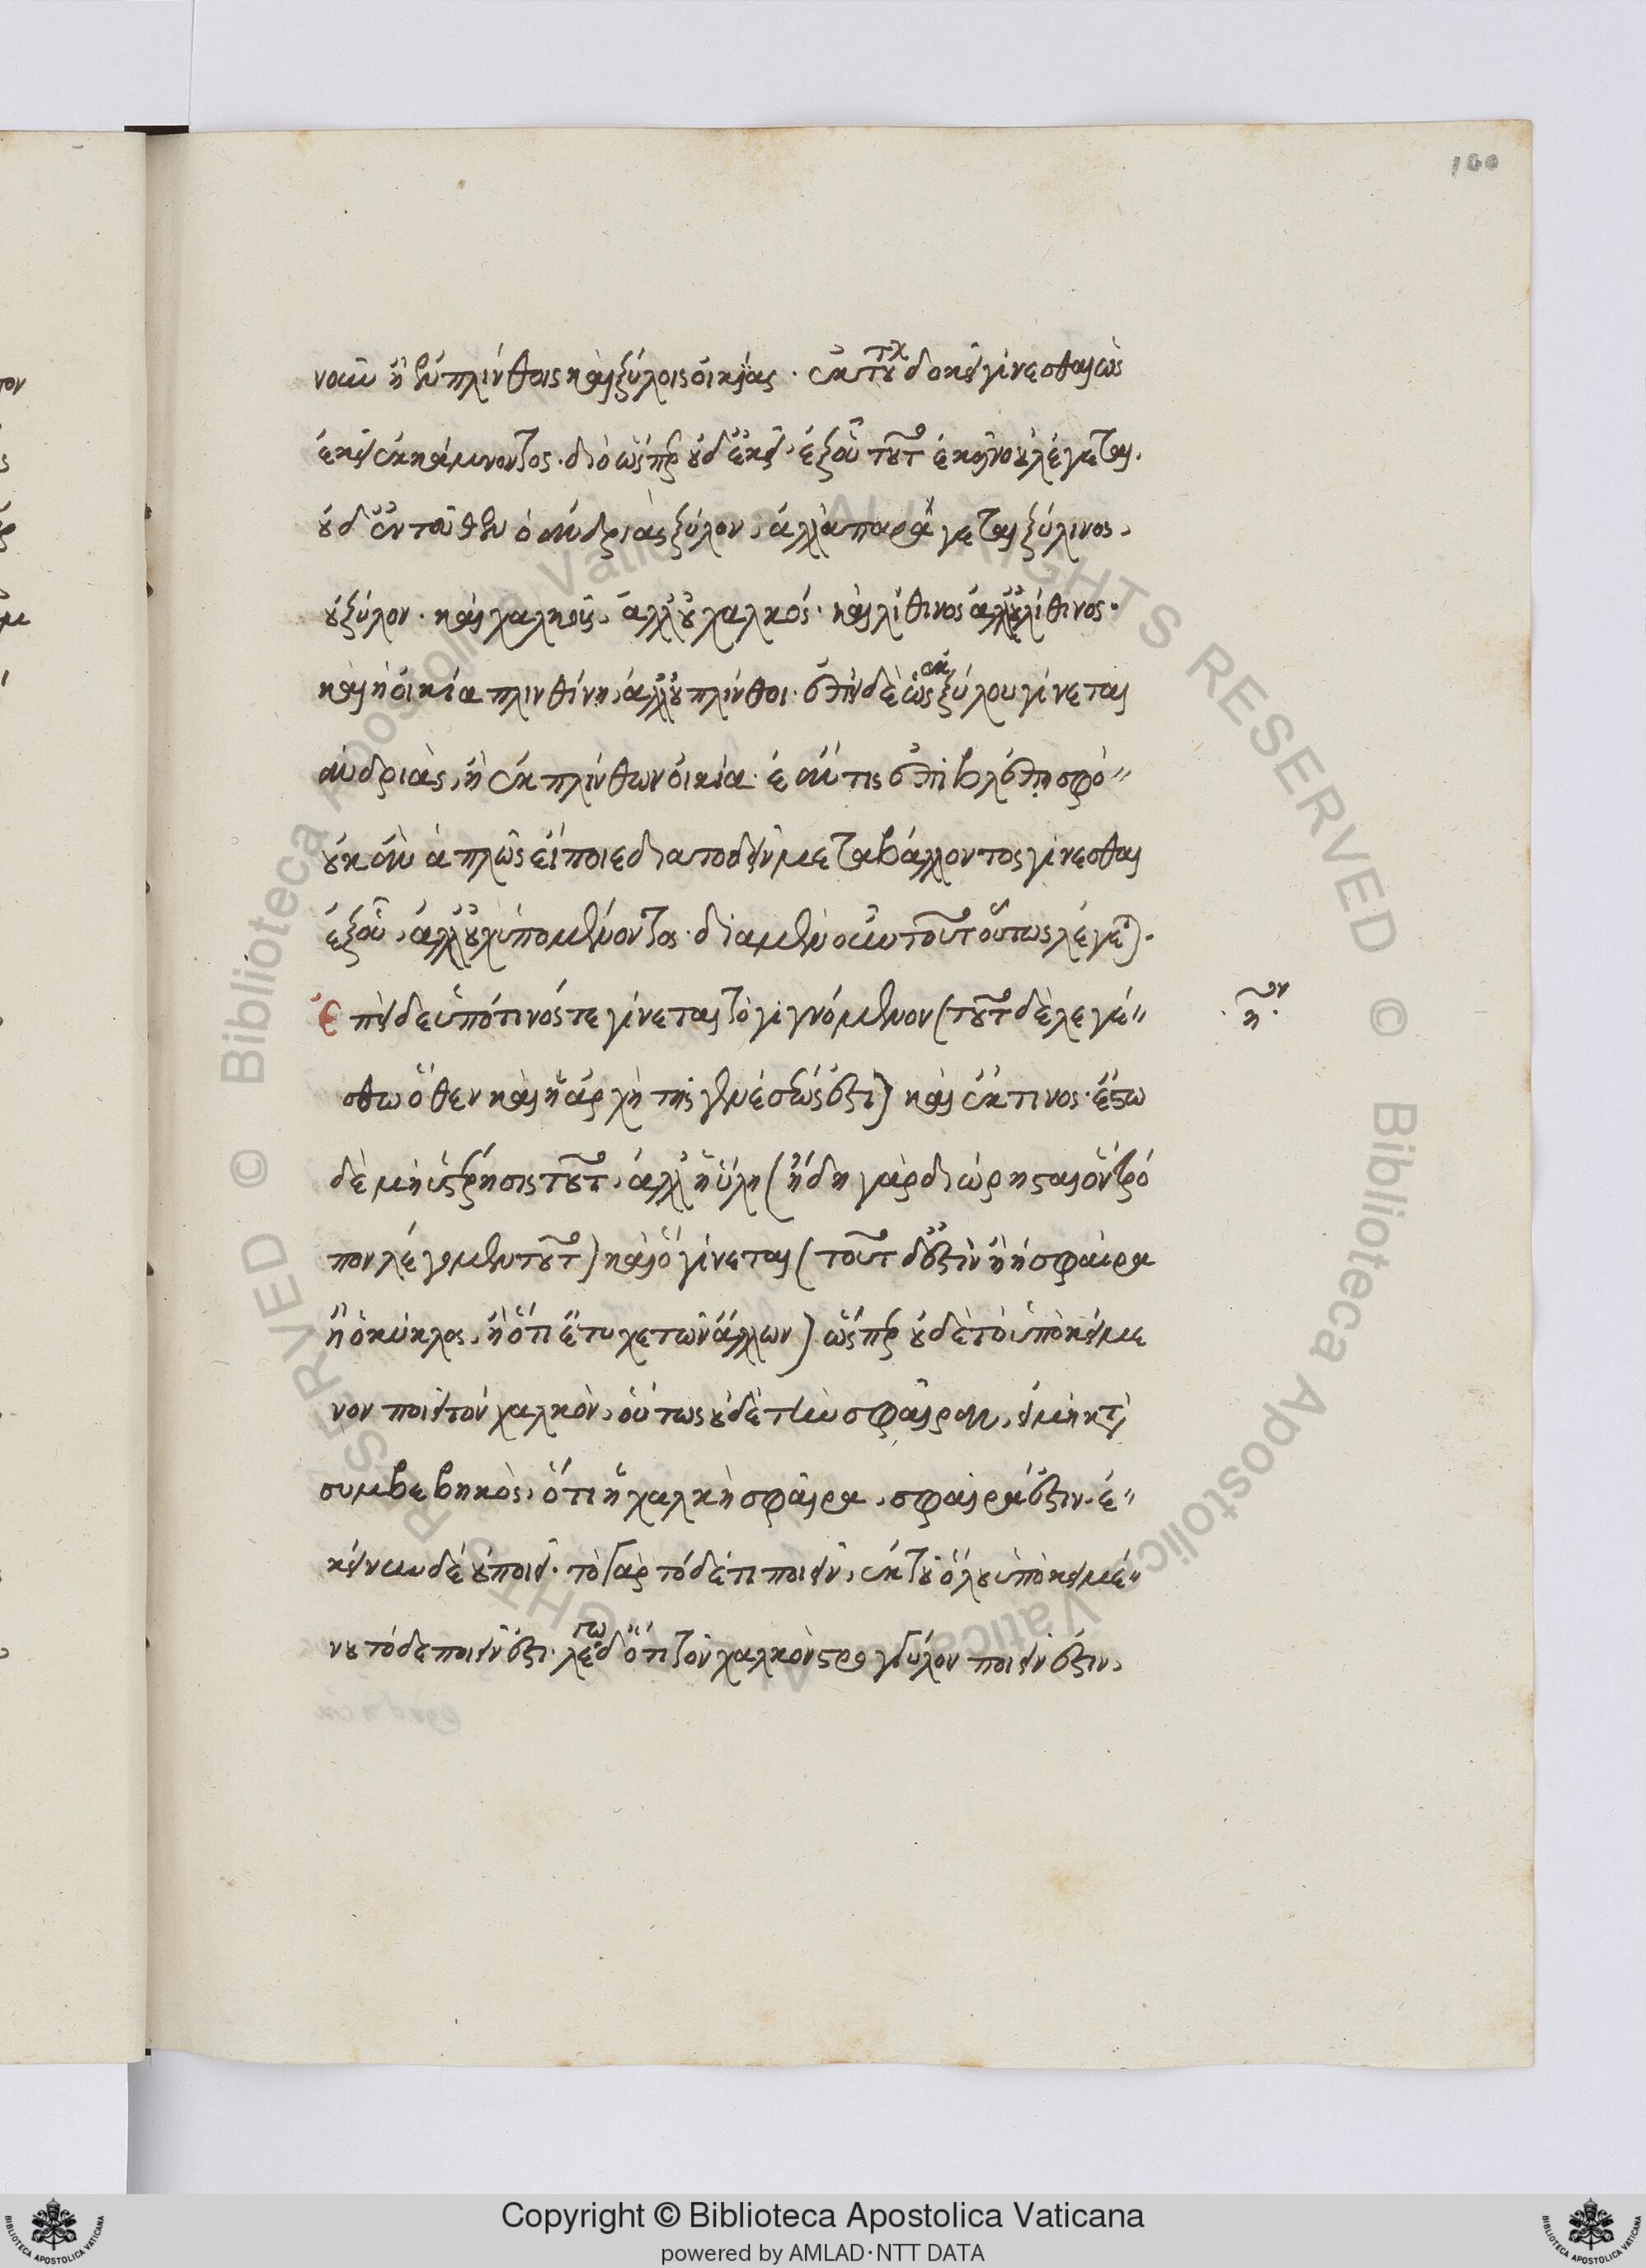 100
νοιαν ἢ ἐν πλίνθοις καὶ ξύλοις οἰκίας. ἐκ τούτου δοκεῖ γίνεσθαι ὡς
ἐκεῖ ἐκ κάμνοντος. διὸ ὥσπερ οὐδ' ἐκεῖ, ἐξ οὗ τοῦτο ἐκεῖνο οὐ λέγεται.
οὐδ' ἐνταῦθεν ὁ ἀνδριὰς ξύλον, ἀλλὰ παράγεται ξύλινος,
οὐ ξύλον. καὶ χαλκοῦς, ἀλλ' οὐ χαλκός. καὶ λίθινος ἀλλ' οὐ λίθινος.
καὶ ἡ οἰκία πλινθίνη, ἀλλ' οὐ πλίνθοι. ἐπεὶ δὲ ὡς ἐκ ξύλου γίνεται
ἀνδριὰς, ἢ ἐκ πλίνθων οἰκία. ἐάν τις ἐπιβλέπῃ σφό-
οὐκ ἂν ἁπλῶς εἴποιε διὰ τὸ δεῖν μεταβάλλοντος γίνεσθαι
ἐξ οὗ, ἀλλ' οὐχ ὑπομένοντος. διὰ μὲν οὖν τοῦτο οὕτως λέγεται.
Ἐπεὶ δὲ ὑπό τινός τε γίνεται τὸ γιγνόμενον (τοῦτο δὲ λεγέ-
σθω ὅθεν καὶ ἡ ἀρχὴ τῆς γενέσεώς ἐστι) καὶ ἔκ τινος. ἔστω
δὲ μὴ στέρησις τοῦτο, ἀλλ' ἡ ὕλη (ἤδη γὰρ διώρησται ὃν τρό
πον λέγομεν τοῦτο) καὶ ὃ γίνεται (τοῦτο δ' ἐστὶν ἢ ἡ σφαῖρα
ἢ ὁ κύκλος, ἢ ὅτι ἔτυχε τῶν ἄλλων) ὥσπερ οὐδὲ τὸ ὑποκείμε
νον ποιεῖ τὸν χαλκὸν, οὕτως οὐδὲ τὴν σφαῖραν, εἰ μὴ κατὰ
συμβεβηκὸς, ὅτι ἡ χαλκῆ σφαῖρα, σφαῖρά ἐστιν. ἐ-
κείνην δὲ οὐ ποιεῖ. τὸ γὰρ τόδε τι ποιεῖν, ἐκ τοῦ ὅλου ὑποκειμέ-
νου τόδε ποιεῖν ἐστι. λέγω δ' ὅτι τὸν χαλκὸν στρογγύλον ποιεῖν ἐστιν,
Copyright © Biblioteca Apostolica Vaticana
powered by AMLAD·NTT DATA